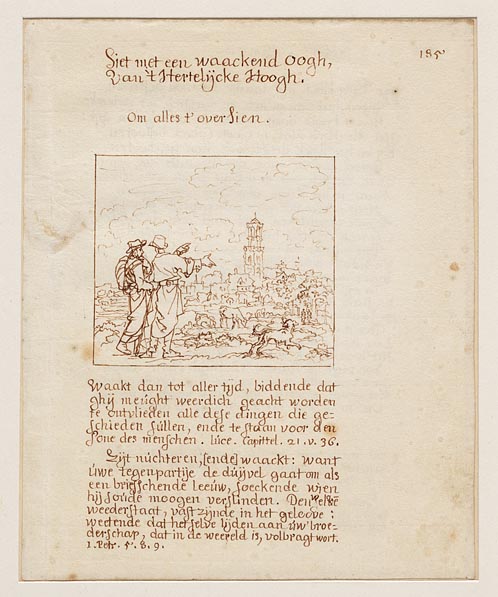 Siet met een waackend oogh,
Van 't Hertelijcke Hoogh.
185
Om alles t' over sien.
Waakt dan tot aller tijd, biddende dat
ghij meught weerdich geacht worden
te ontvlieden alle dese dingen die ge-
schieden sullen, ende te staan voor den
sone des menschen. luce. Capittel. 21. v. 36.
Zijt nuchteren, [ende] waackt: want
uwe tegenpartije de duijvel gaat om als
een brijsschende leeuw, soeckende wien
hij soude moogen verslinden. Den welke
weederstaat, vast zijnde in het geloove:
weetende dat het selve lijden aan uw broe-
derschap, dat in de weereld is, volbragt wort.
1. Petr. 5. 8. 9.